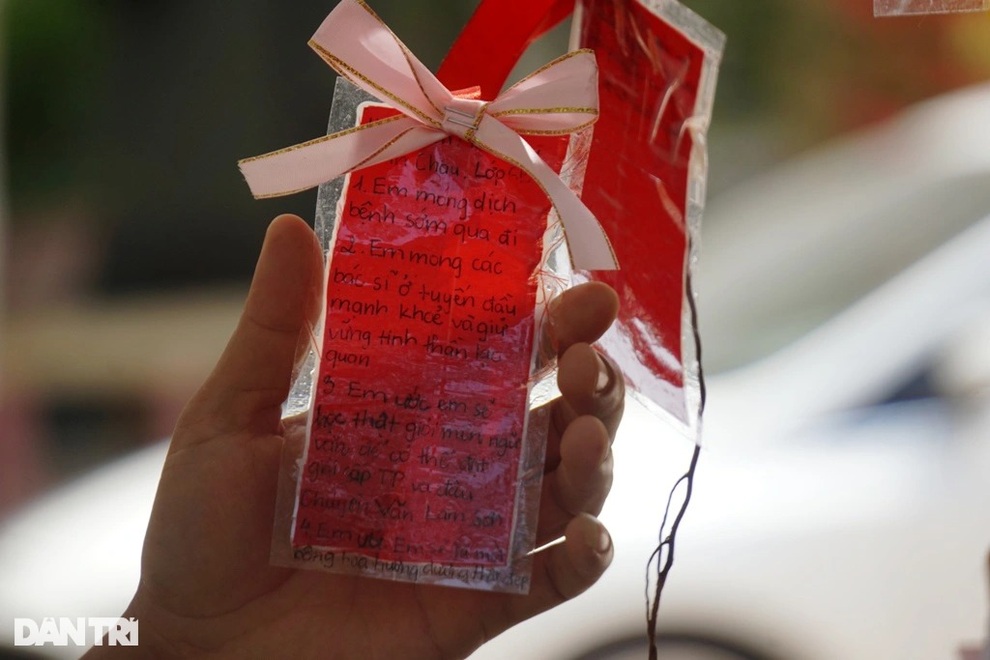 Châu, Lớp
1. Em mong dịch
bệnh sớm qua đi
2. Em mong các
bác sĩ ở tuyến đầu
mạnh khoẻ và giữ
vững tinh thần lạc
quan
3. Em ước em sẽ
học thật giỏi môn
anh để có thể
giỏi cấp TP và đậu
Chuyên Văn Lam Sơn
4. Em ước Em sẽ là một
bông hoa hướng dương
DÂN TRÍ